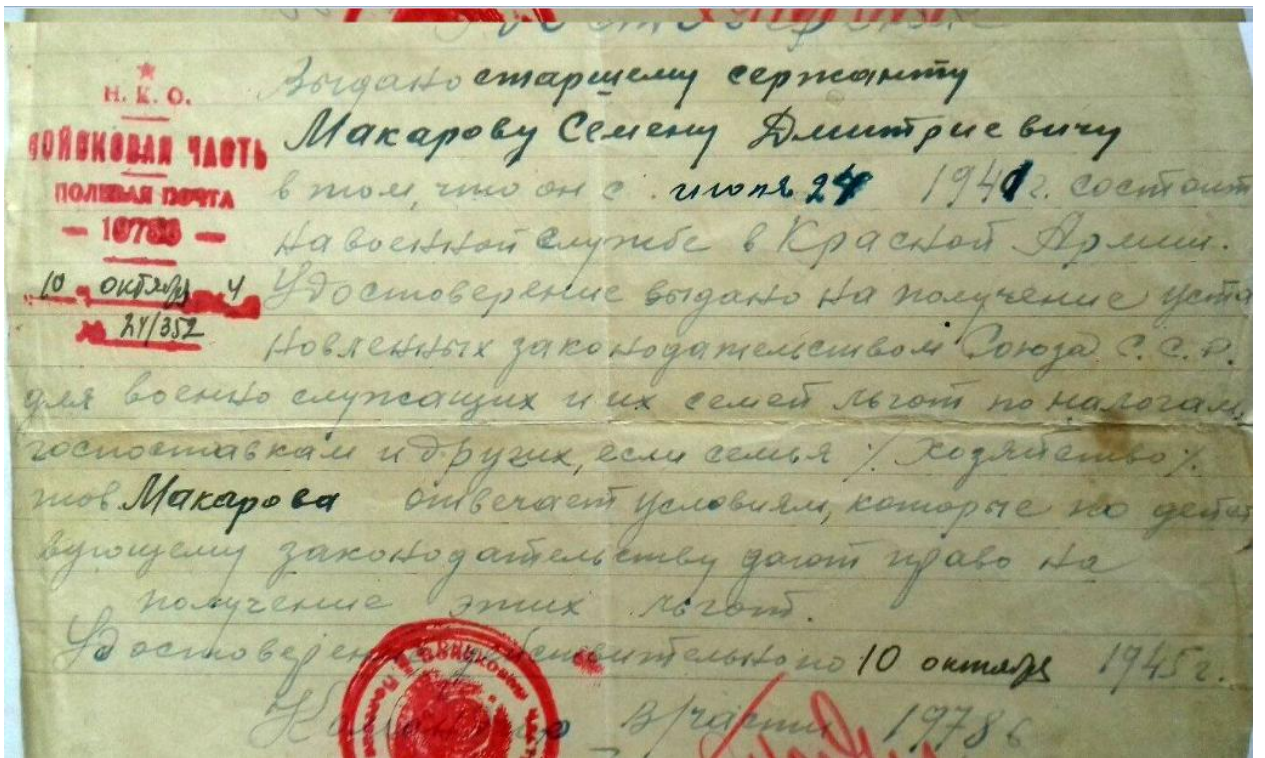 Удостоверение
Н. К. О.
ВОЙСКОВАЯ ЧАСТЬ
ПОЛЕВАЯ ПОЧТА
— 19786 —
10 октября 4
№ 24/352
Выдано старшему сержанту
Макарову Семену Дмитриевичу
в том, что он с июня 24 1941г. состоит
на военной службе в Красной Армии.
Удостоверение выдано на получение уста
новленных законодательством Союза С.С.Р.
для военно служащих и их семей льгот по налогам,
госпоставкам и других, если семья /. хозяйство /.
тов. Макарова отвечает условиям, которые по дейст
вующему законодательству дают право на
получение этих льгот.
Удостоверение действительно по 10 октября 1945г.
в/части 19786